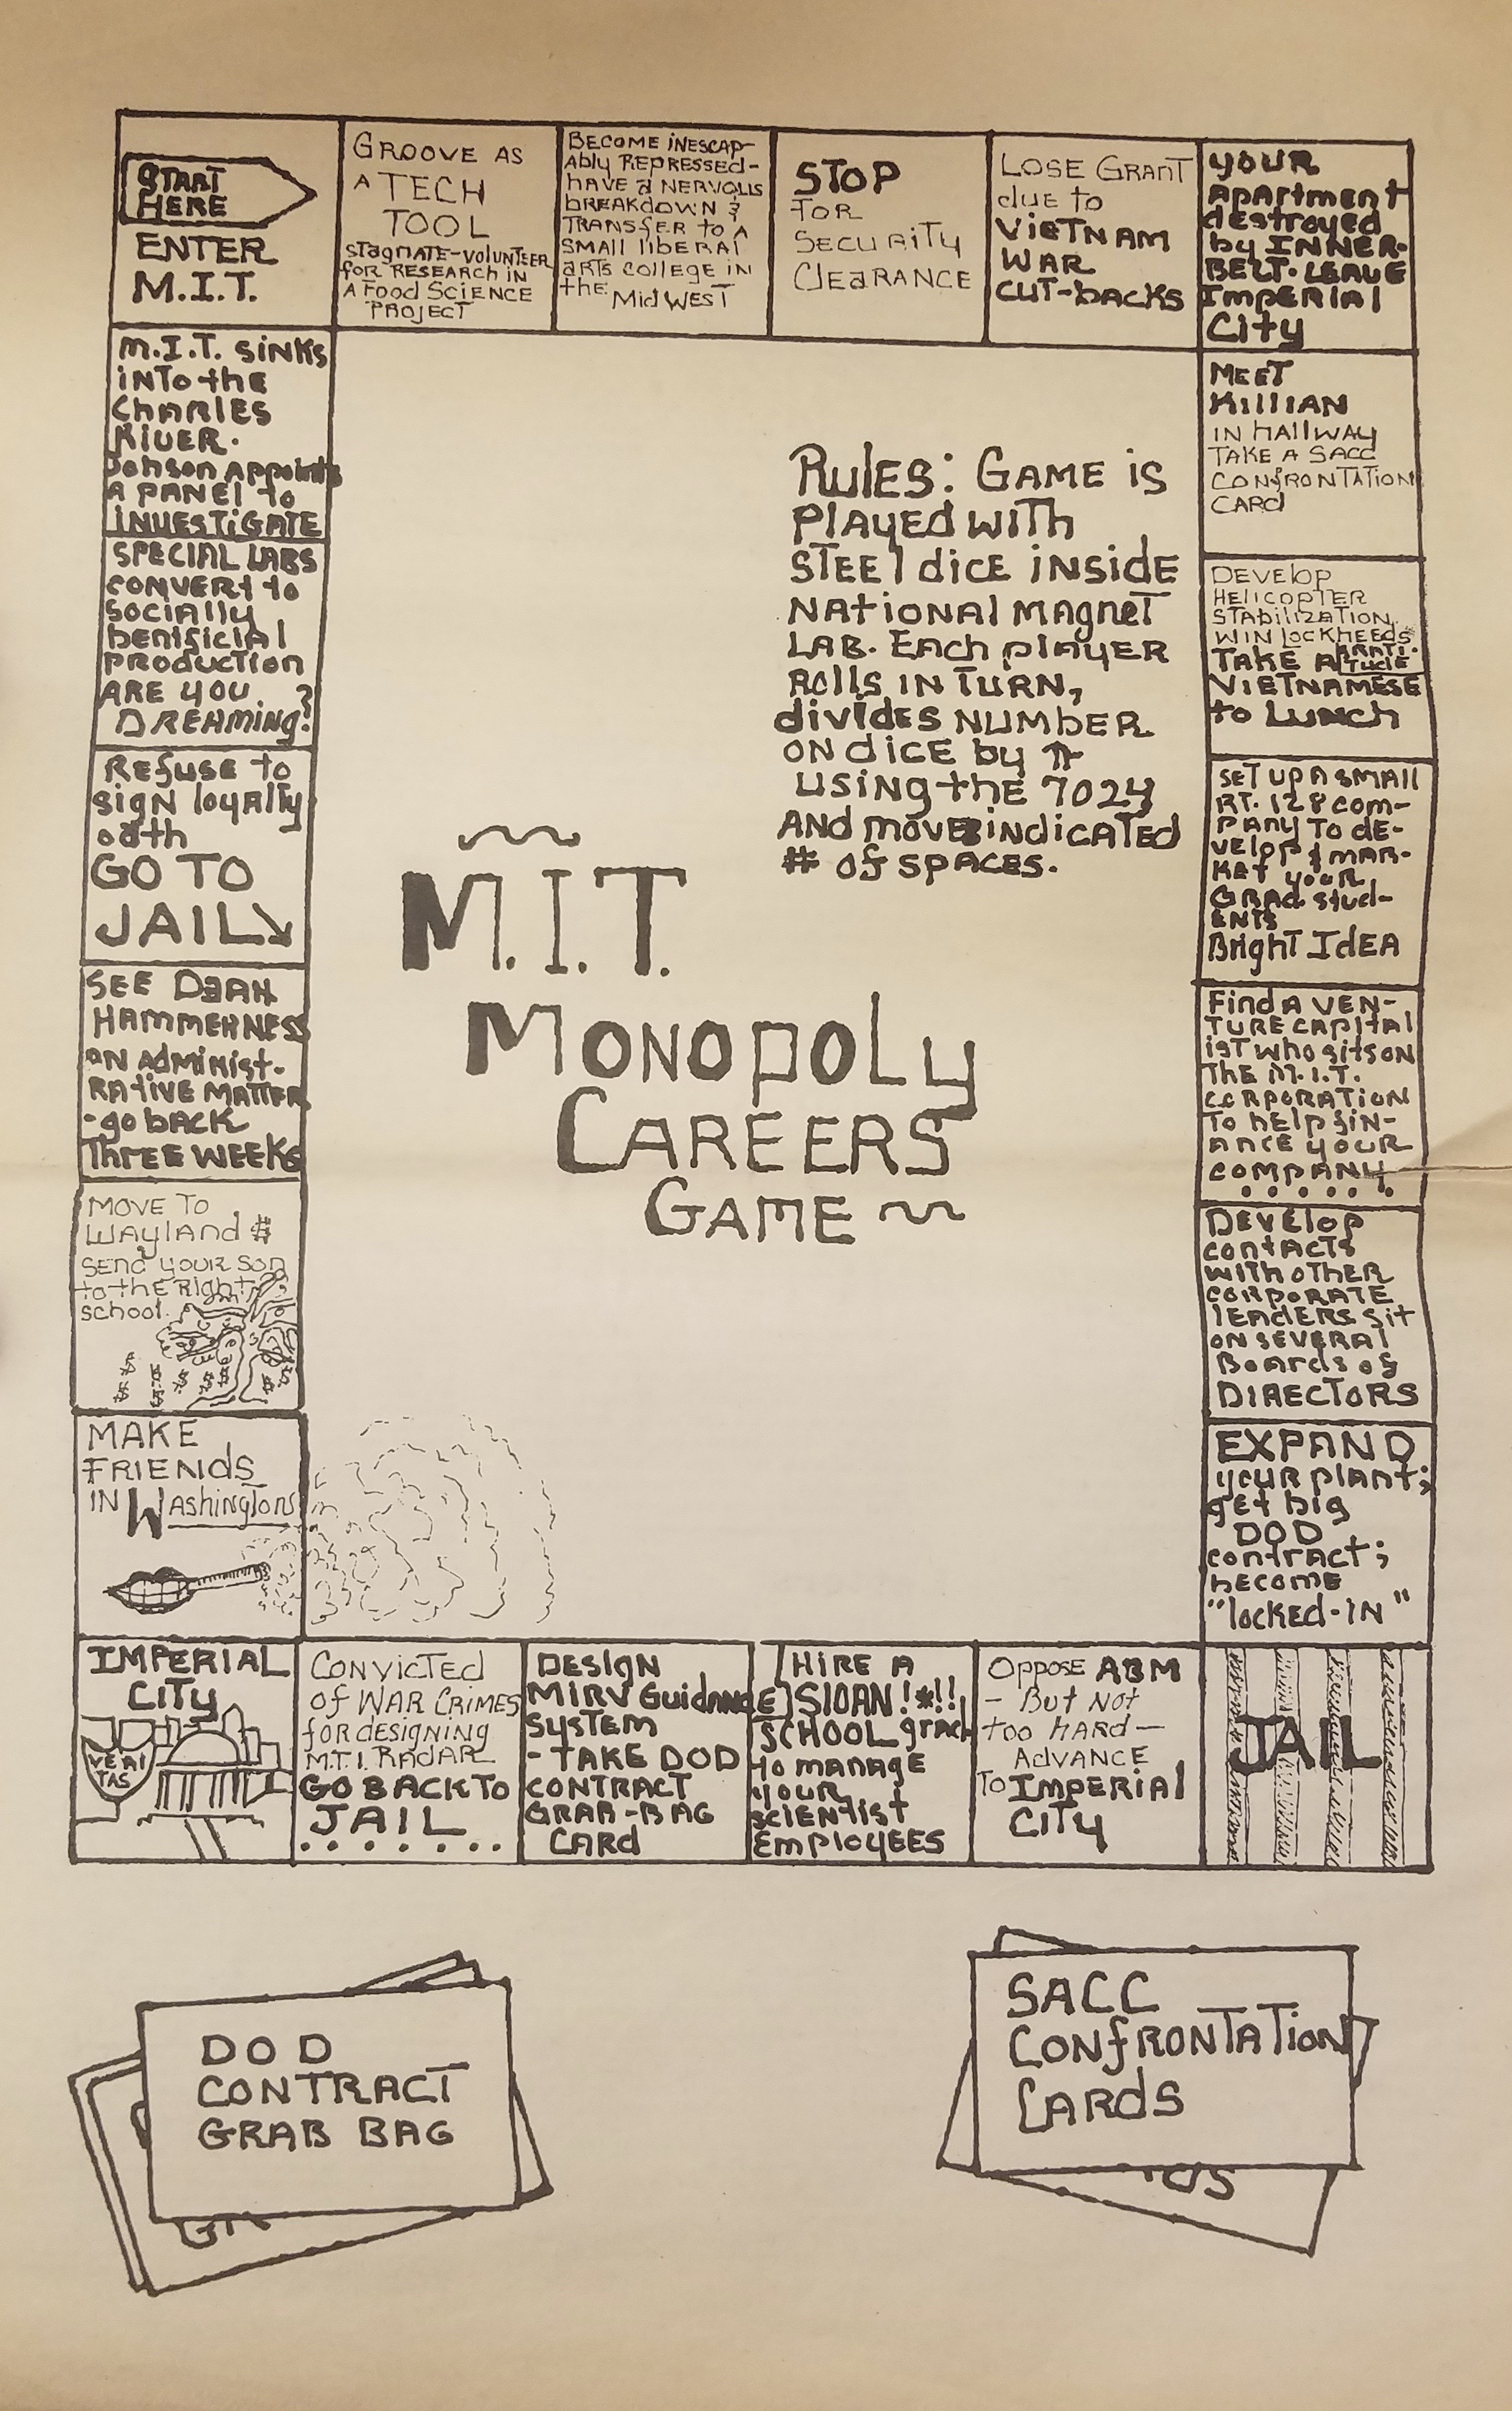 START
HERE
ENTER
M.I.T.
GROOVE AS
A TECH
TOOL
STAGNATE-VOLUNTEER
for RESEARCH IN
A Food SCIENCE
PROJECT
BECOME INESCAP-
Ably REPRESSED-
HAVE a NERVOUS
BREAKDOWN &
TRANSFER to A
SMALL liberAl
ARTS COLLEGE IN
the MidWEST
STOP
FOR
SECURITY
CLEARANCE
LOSE GRANT
due to
VIETNAM
WAR
CUT-bACKS
YOUR
Apartment
destroyed
by INNER-
BELT. LEAVE
IMPERIAL
City
MEET
KILLIAN
IN HALLWAY
TAKE A SACC
CONFRONTATION
CARD
DEVELOP
HELICOPTER
STAbILIZATION.
WIN LOCKHEEDS
GRATI-
TUDE
TAKE A
VIETNAMESE
to LUNCH
SET UP A SMALL
RT. 128 COM-
PANY TO dE-
VELOP & MAR-
KET YOUR
GRAd Stud-
ENTS
Bright IdEA
Find A VEN-
TURE CAPITAL
IST WHO SITS ON
THE M.I.T.
CORPORATION
TO HELP FIN-
ANCE YOUR
COMPANY
. . . . . .
DEVELOP
CONTACTS
WITH OTHER
CORPORATE
LEADERS. SIT
ON SEVERAL
BOARDS OF
DIRECTORS
EXPAND
YOUR plANT;
get big
DOD
contract;
become
"locked-IN"
JAIL
Oppose ABM
- But Not
too HARD -
ADVANCE
TO IMPERIAL
CITY
HIRE A
SLOAN !*!!
SCHOOL grad
to MANAGE
your
SCIENTIST
EMPLOYEES
DESIGN
MIRV Guidance
SYSTEM
- TAKE DOD
CONTRACT
GRAB-BAG
CARd
CONVICTED
of WAR CRIMES
for dESIGNING
M.T.I. RADAR
GO BACK TO
JAIL
. . . . . . .
IMPERIAL
CITY
VERI
TAS
MAKE
FRIENDS
IN Washington
MOVE TO
Wayland &
SEND your SON
to the Right
school.
$ $ $ $ $ $ $ $
SEE DEAN
HAMMERNESS
ON ADMINIST-
RATIVE MATTER
- go BACK
THREE WEEKS
REFUSE to
sign loyAlty
oAth
GO TO
JAIL
SPECIAL LABS
CONVERT to
SOCIALLY
benificial
PRODUCTION
ARE YOU
DREAMING?!
M.I.T. SINKS
INTO the
CHARLES
RIVER.
Johson Appoints
A PANEL to
INVESTIGATE
RULES: GAME IS
PLAYED WITH
STEEL dICE INSIDE
NATIONAL MAGNET
LAB. EACH PLAYER
ROLLS IN TURN,
dIVIDES NUMBER
ON dICE by π
using the 7024
AND MOVES INDICATED
# of SPACES.
M.I.T.
MONOPOLY
CAREERS
GAME
DOD
CONTRACT
GRAB BAG
SACC
CONFRONTATION
CARDS